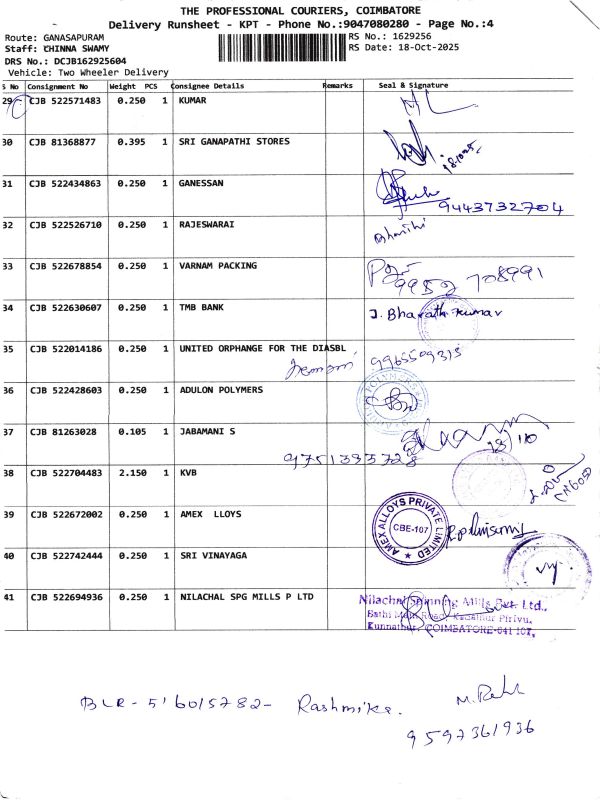 THE PROFESSIONAL COURIERS, COIMBATORE
Delivery Runsheet - KPT - Phone No.:9047080280 - Page No.:4
Route: GANASAPURAM RS No.: 1629256
Staff: CHINNA SWAMY RS Date: 18-Oct-2025
DRS No.: DCJB162925604
Vehicle: Two Wheeler Delivery
S No Consignment No Weight PCS Consignee Details Remarks Seal & Signature
29 CJB 522571483 0.250 1 KUMAR
30 CJB 81368877 0.395 1 SRI GANAPATHI STORES
31 CJB 522434863 0.250 1 GANESSAN
9443732704
32 CJB 522526710 0.250 1 RAJESWARAI
33 CJB 522678854 0.250 1 VARNAM PACKING
9952 708991
34 CJB 522630607 0.250 1 TMB BANK J. Bharath kumar
35 CJB 522014186 0.250 1 UNITED ORPHANGE FOR THE DIASBL
9965509315
36 CJB 522428603 0.250 1 ADULON POLYMERS
37 CJB 81263028 0.105 1 JABAMANI S
9751335728
38 CJB 522704483 2.150 1 KVB
39 CJB 522672002 0.250 1 AMEX LLOYS
AMEX ALLOYS PRIVATE LIMITED
CBE-107
40 CJB 522742444 0.250 1 SRI VINAYAGA
41 CJB 522694936 0.250 1 NILACHAL SPG MILLS P LTD
Nilachal Spinning Mills Pvt. Ltd.,
Sathi Main Road, Kadathur Pirivu,
Kunnathur, COIMBATORE-641 107.
BLR - 516015782 - Rashmika.
9597361936